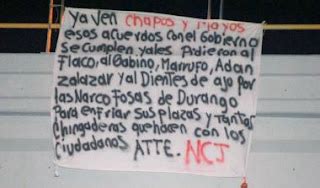 ya ven chapos y Mayos
esos acuerdos con el Gobierno
se cumplen yales Pidieron al
Flaco, al Gabino, Marrufo, Adan
zalazar y al Dientes de ajo por
las Narco Fosas de Durango
Para enfriar sus plazas y tantas
Chingaderas que hacen con los
ciudadanos ATTE. NCJ